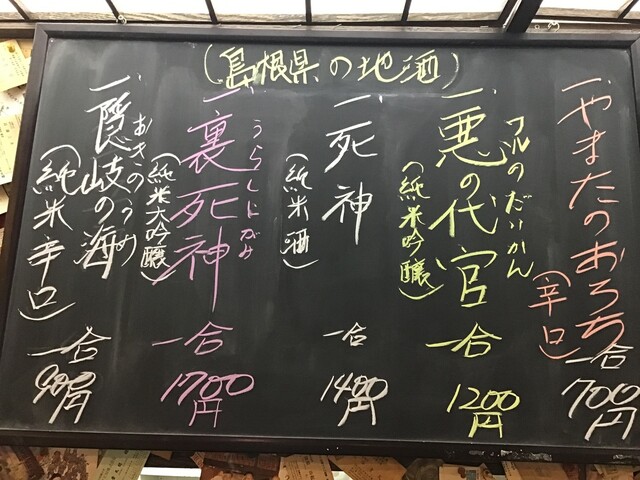 (島根県の地酒)
一、やまたのおろち
(辛口)
一合
700円
一、悪の代官
ワルのだいかん
(純米吟醸)
一合
1200円
一、死神
(純米酒)
一合
1400円
一、裏死神
うらしにがみ
(純米大吟醸)
一合
1700円
一、隠岐の海
おきのうみ
(純米辛口)
一合
900円